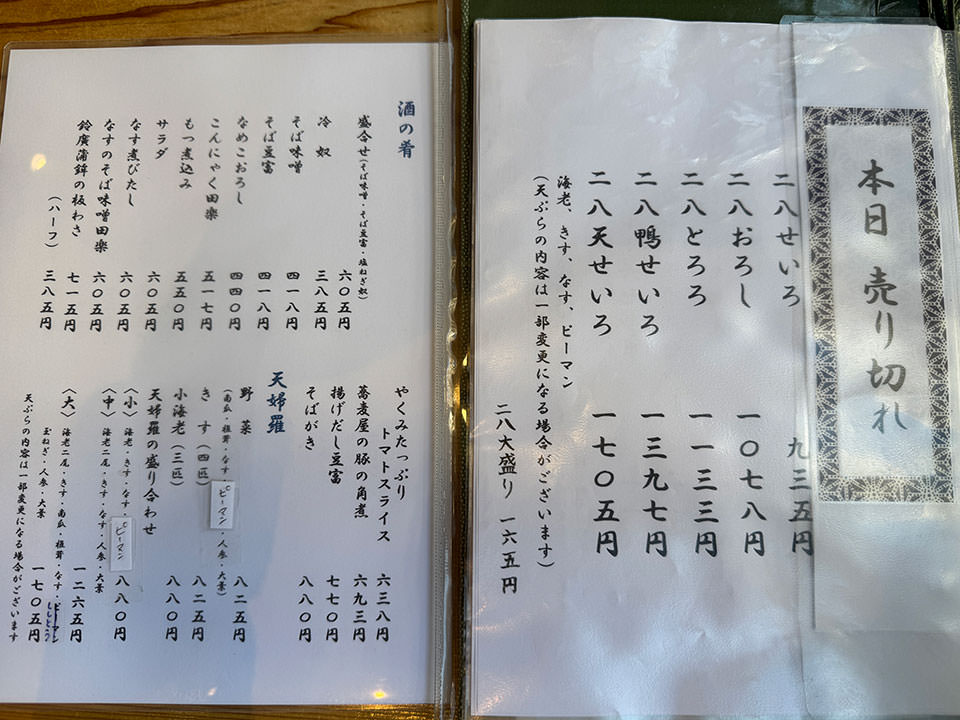 本日 売り切れ
二八せいろ 九三五円
二八おろし 一〇七八円
二八とろろ 一一三三円
二八鴨せいろ 一三九七円
二八天せいろ 一七〇五円
海老、きす、なす、ピーマン
(天ぷらの内容は一部変更になる場合がございます)
二八大盛り 一六五円
酒の肴
盛合せ(そば味噌・そば豆富・塩ねぎ奴) 六〇五円
冷奴 三八五円
そば味噌 四一八円
そば豆富 四一八円
なめこおろし 四四〇円
こんにゃく田楽 五一七円
もつ煮込み 五五〇円
サラダ 六〇五円
なす煮びたし 六〇五円
なすのそば味噌田楽 六〇五円
鈴廣蒲鉾の板わさ 七一五円
(ハーフ) 三八五円
やくみたっぷり
トマトスライス 六三八円
蕎麦屋の豚の角煮 六九三円
揚げだし豆富 七七〇円
そばがき 八八〇円
天婦羅
野菜 八二五円
(南瓜・椎茸・なす・ピーマン・人参・大葉)
きす(四匹) 八二五円
小海老(三匹) 八八〇円
天婦羅の盛り合わせ
〈小〉 海老・きす・なす・ピーマン 八八〇円
〈中〉 海老二尾・きす・なす・人参・大葉 一二六五円
〈大〉 海老二尾・きす・南瓜・椎茸・なす・ピーマン ししとう
玉ねぎ・人参・大葉 一七〇五円
天ぷらの内容は一部変更になる場合がございます